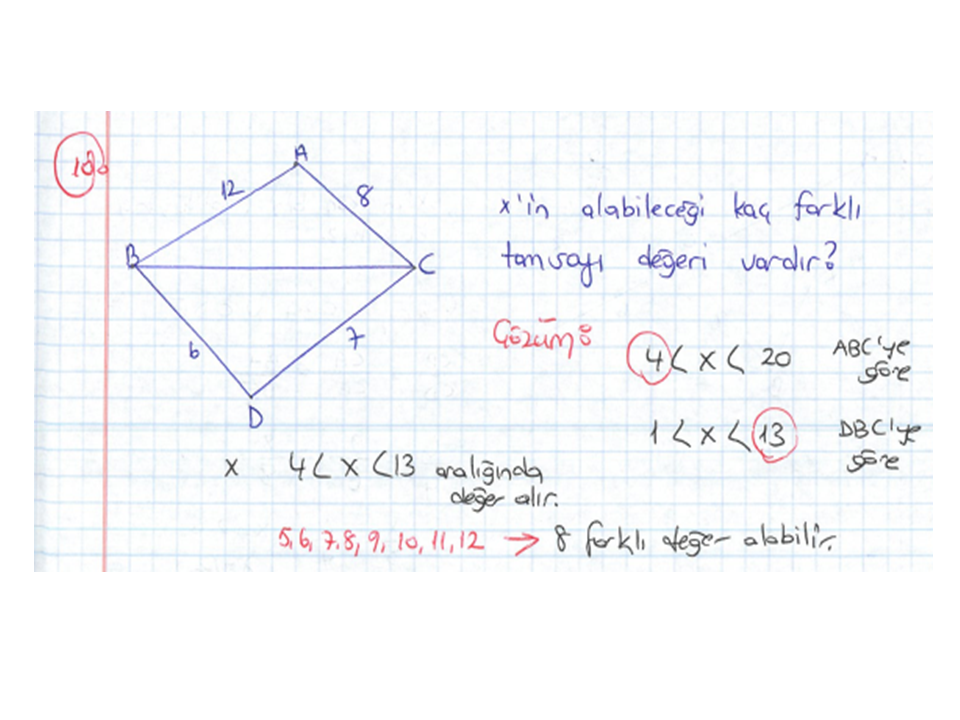 10.
A
12
8
B
C
6
7
D
x'in alabileceği kaç farklı
tamsayı değeri vardır?
Çözüm:
4 < x < 20 ABC'ye
göre
1 < x < 13 DBC'ye
göre
x 4 < x < 13 aralığında
değer alır.
5, 6, 7, 8, 9, 10, 11, 12 → 8 farklı değer alabilir.